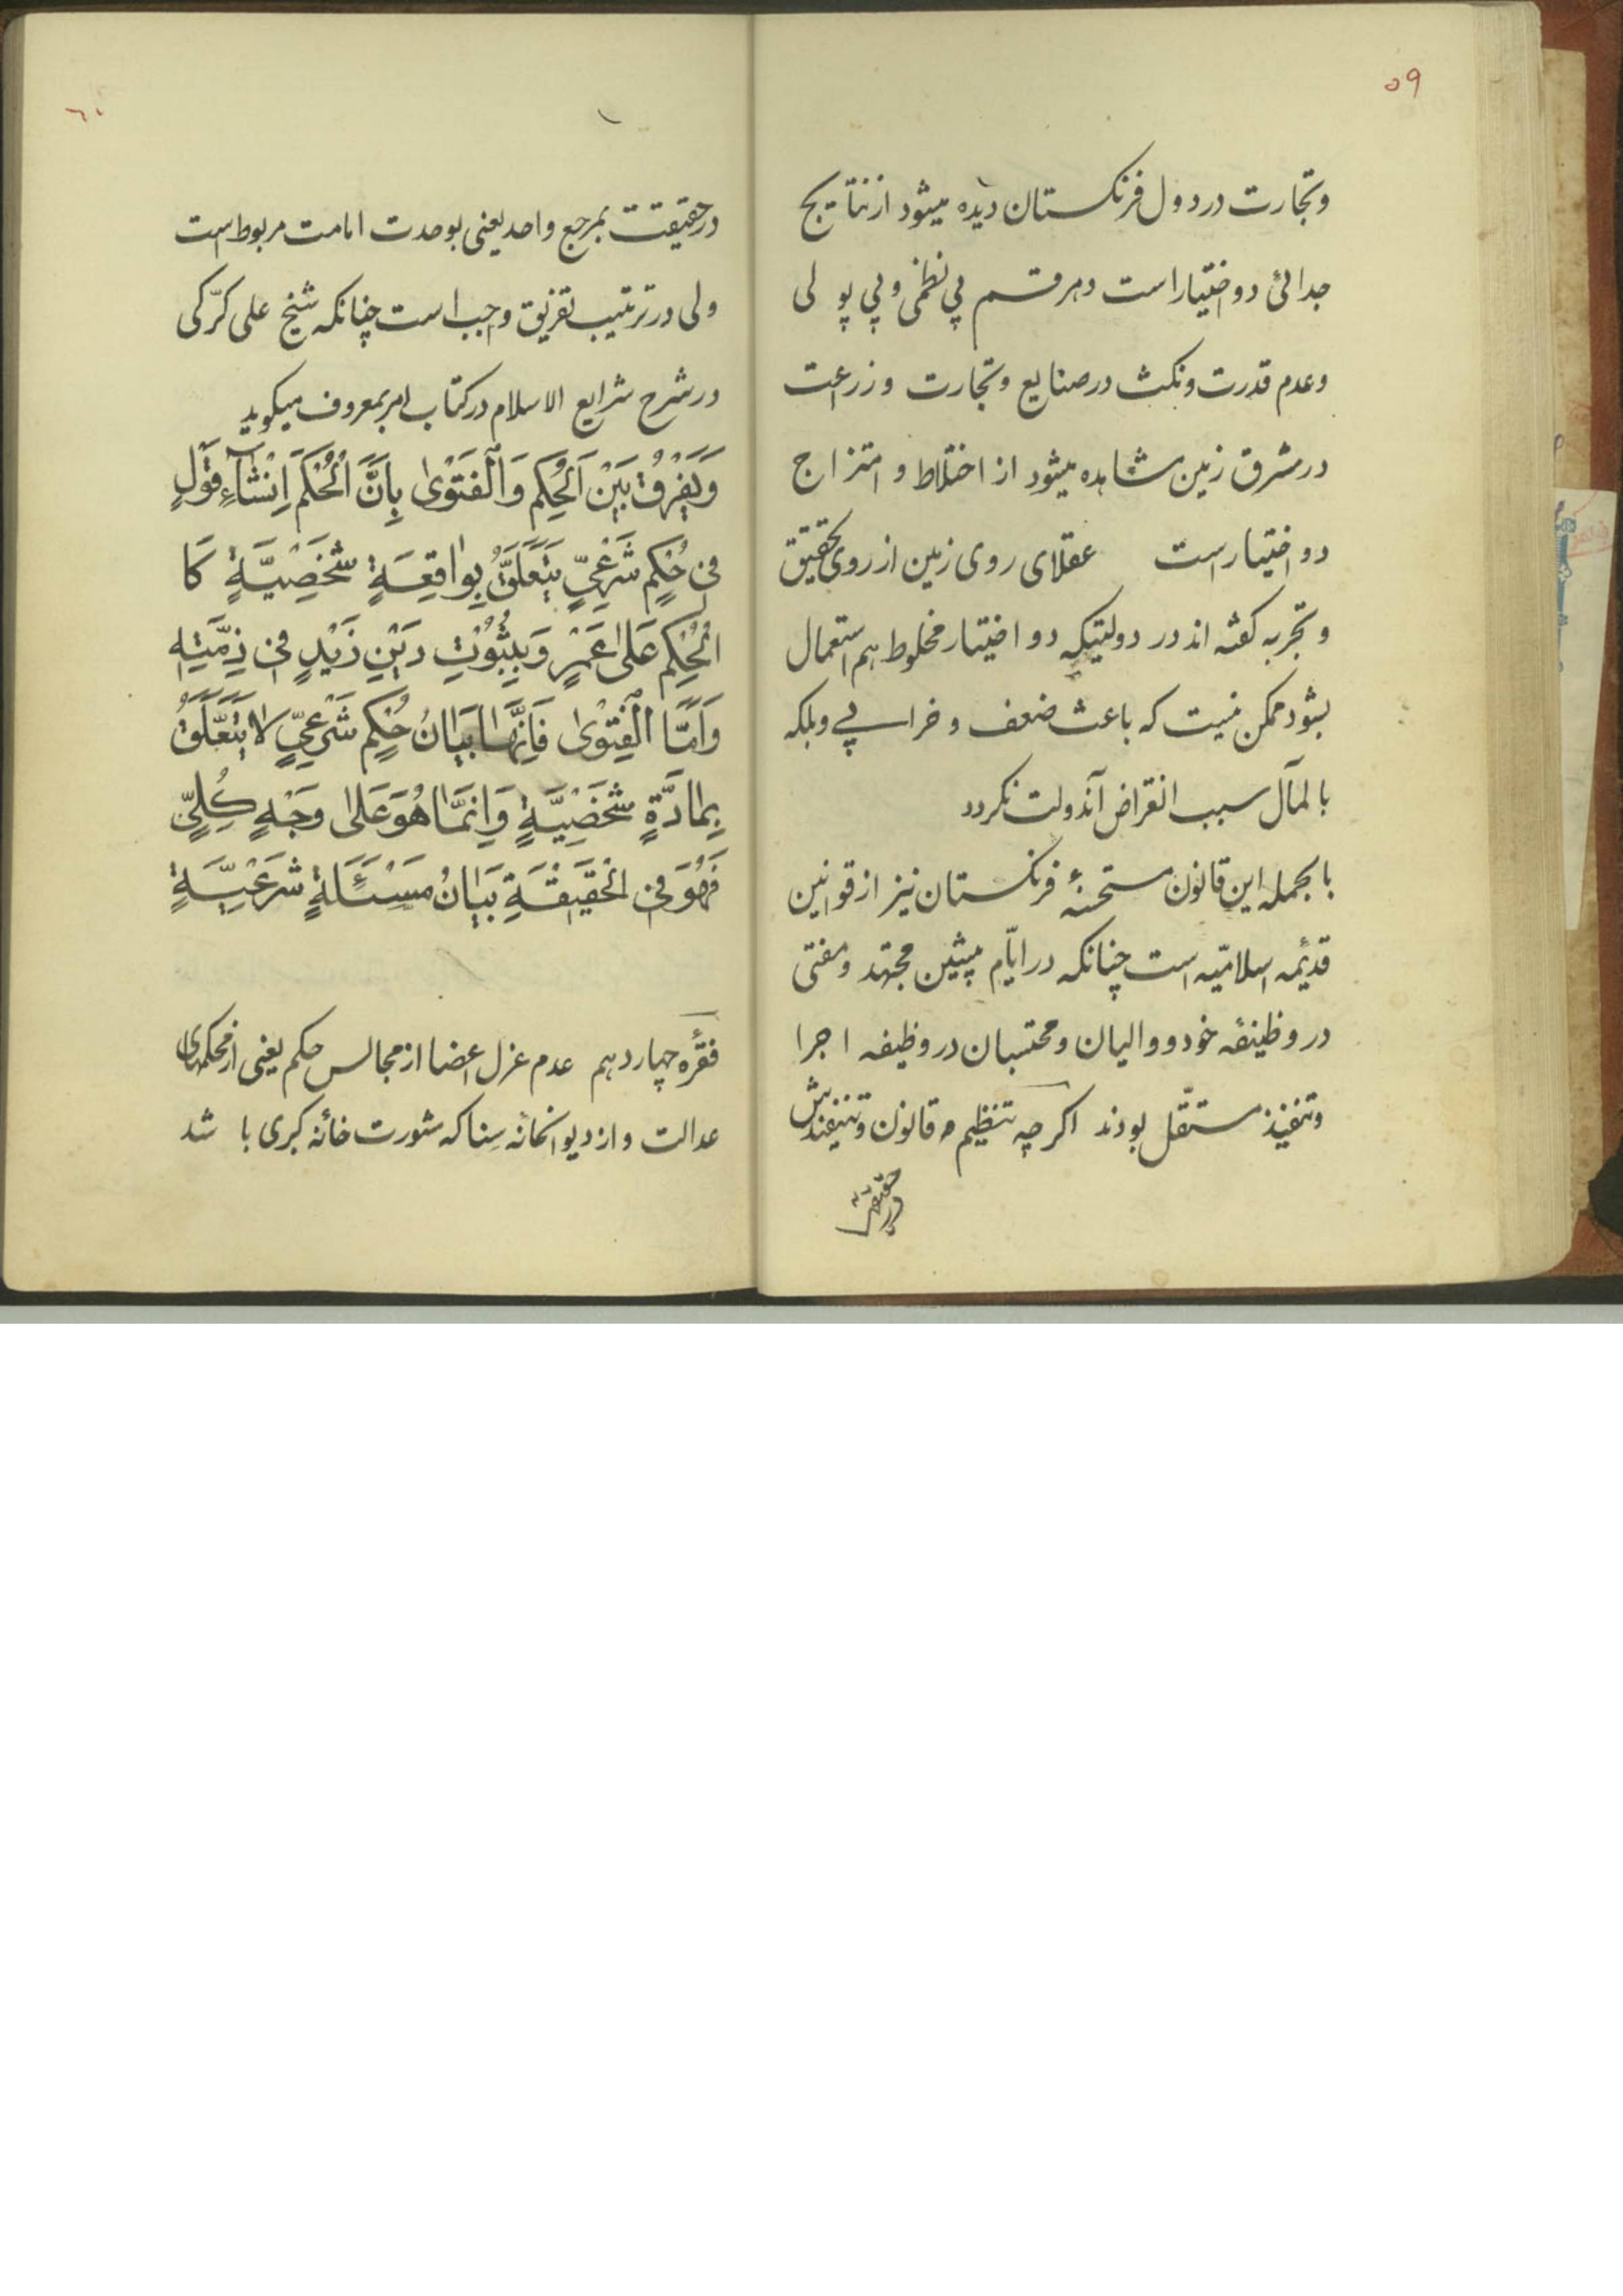 ۵۹
وتجارت در دول فرنکستان دیده میشود از نتایج
جدائی دو اختیار است و هر قسم بی نظمی و بی پولی
وعدم قدرت ونکث در صنایع وتجارت و زراعت
در مشرق زمین مشاهده میشود از اختلاط و امتزاج
دو اختیار است عقلای روی زمین از روی تحقیق
وتجربه کفته اند در دولتیکه دو اختیار مخلوط هم استعمال
بشود ممکن نیست که باعث ضعف و خرابی وبلکه
بالمآل سبب انقراض آندولت نکردد
بالجمله این قانون مستحسنهٔ فرنکستان نیز از قوانین
قدیمهٔ اسلامیّه است چنانکه در ایّام پیشین مجتهد و مفتی
در وظیفهٔ خود و والیان ومحتسبان در وظیفه اجرا
وتنفیذ مستقّل بودند اکرچه تنظیم قانون وتنفیذش
درحقیقت
٦٠
درحقیقت بمرجع واحد یعنی بوحدت امامت مربوط است
ولی در ترتیب تفریق واجب است چنانکه شیخ علی کرّکی
در شرح شرایع الاسلام در کتاب امر بمعروف میکوید
وَيَفْرُقُ بَيْنَ الْحُكِمِ وَالْفَتْوٰى بِاَنَّ الْحُكْمَ اِنْشٰآءُ قَوْلٍ
فى حُكِمٍ شَرْعىٍّ يَتَعَلَّقُ بِوٰاقِعَةٍ شَخْصِيَّةٍ كَا
لْحُكِمِ عَلٰى عَمْرٍ وَبِثُبُوْتِ دَيْنِ زَيْدٍ فى ذِمَّتِهِ
وَاَمَّا الْفَتْوٰى فَاِنَّهٰا بَيٰانُ حُكِمٍ شَرْعىٍّ لاٰ يَتَعَلَّقُ
بِمٰادَّةٍ شَخْصِيَّةٍ وَاِنَّمٰا هُوَ عَلٰى وَجْهٍ كُلِّىٍّ
فَهُوَ فِى الْحَقيقَةِ بَيٰانُ مَسْئَلَةٍ شَرْعِيَّةٍ
فقرهٔ چهاردهم عدم عزل اعضا از مجالس حکم یعنی از محکمهای
عدالت و از دیوانخانه سِنا که شورت خانه کبری باشد